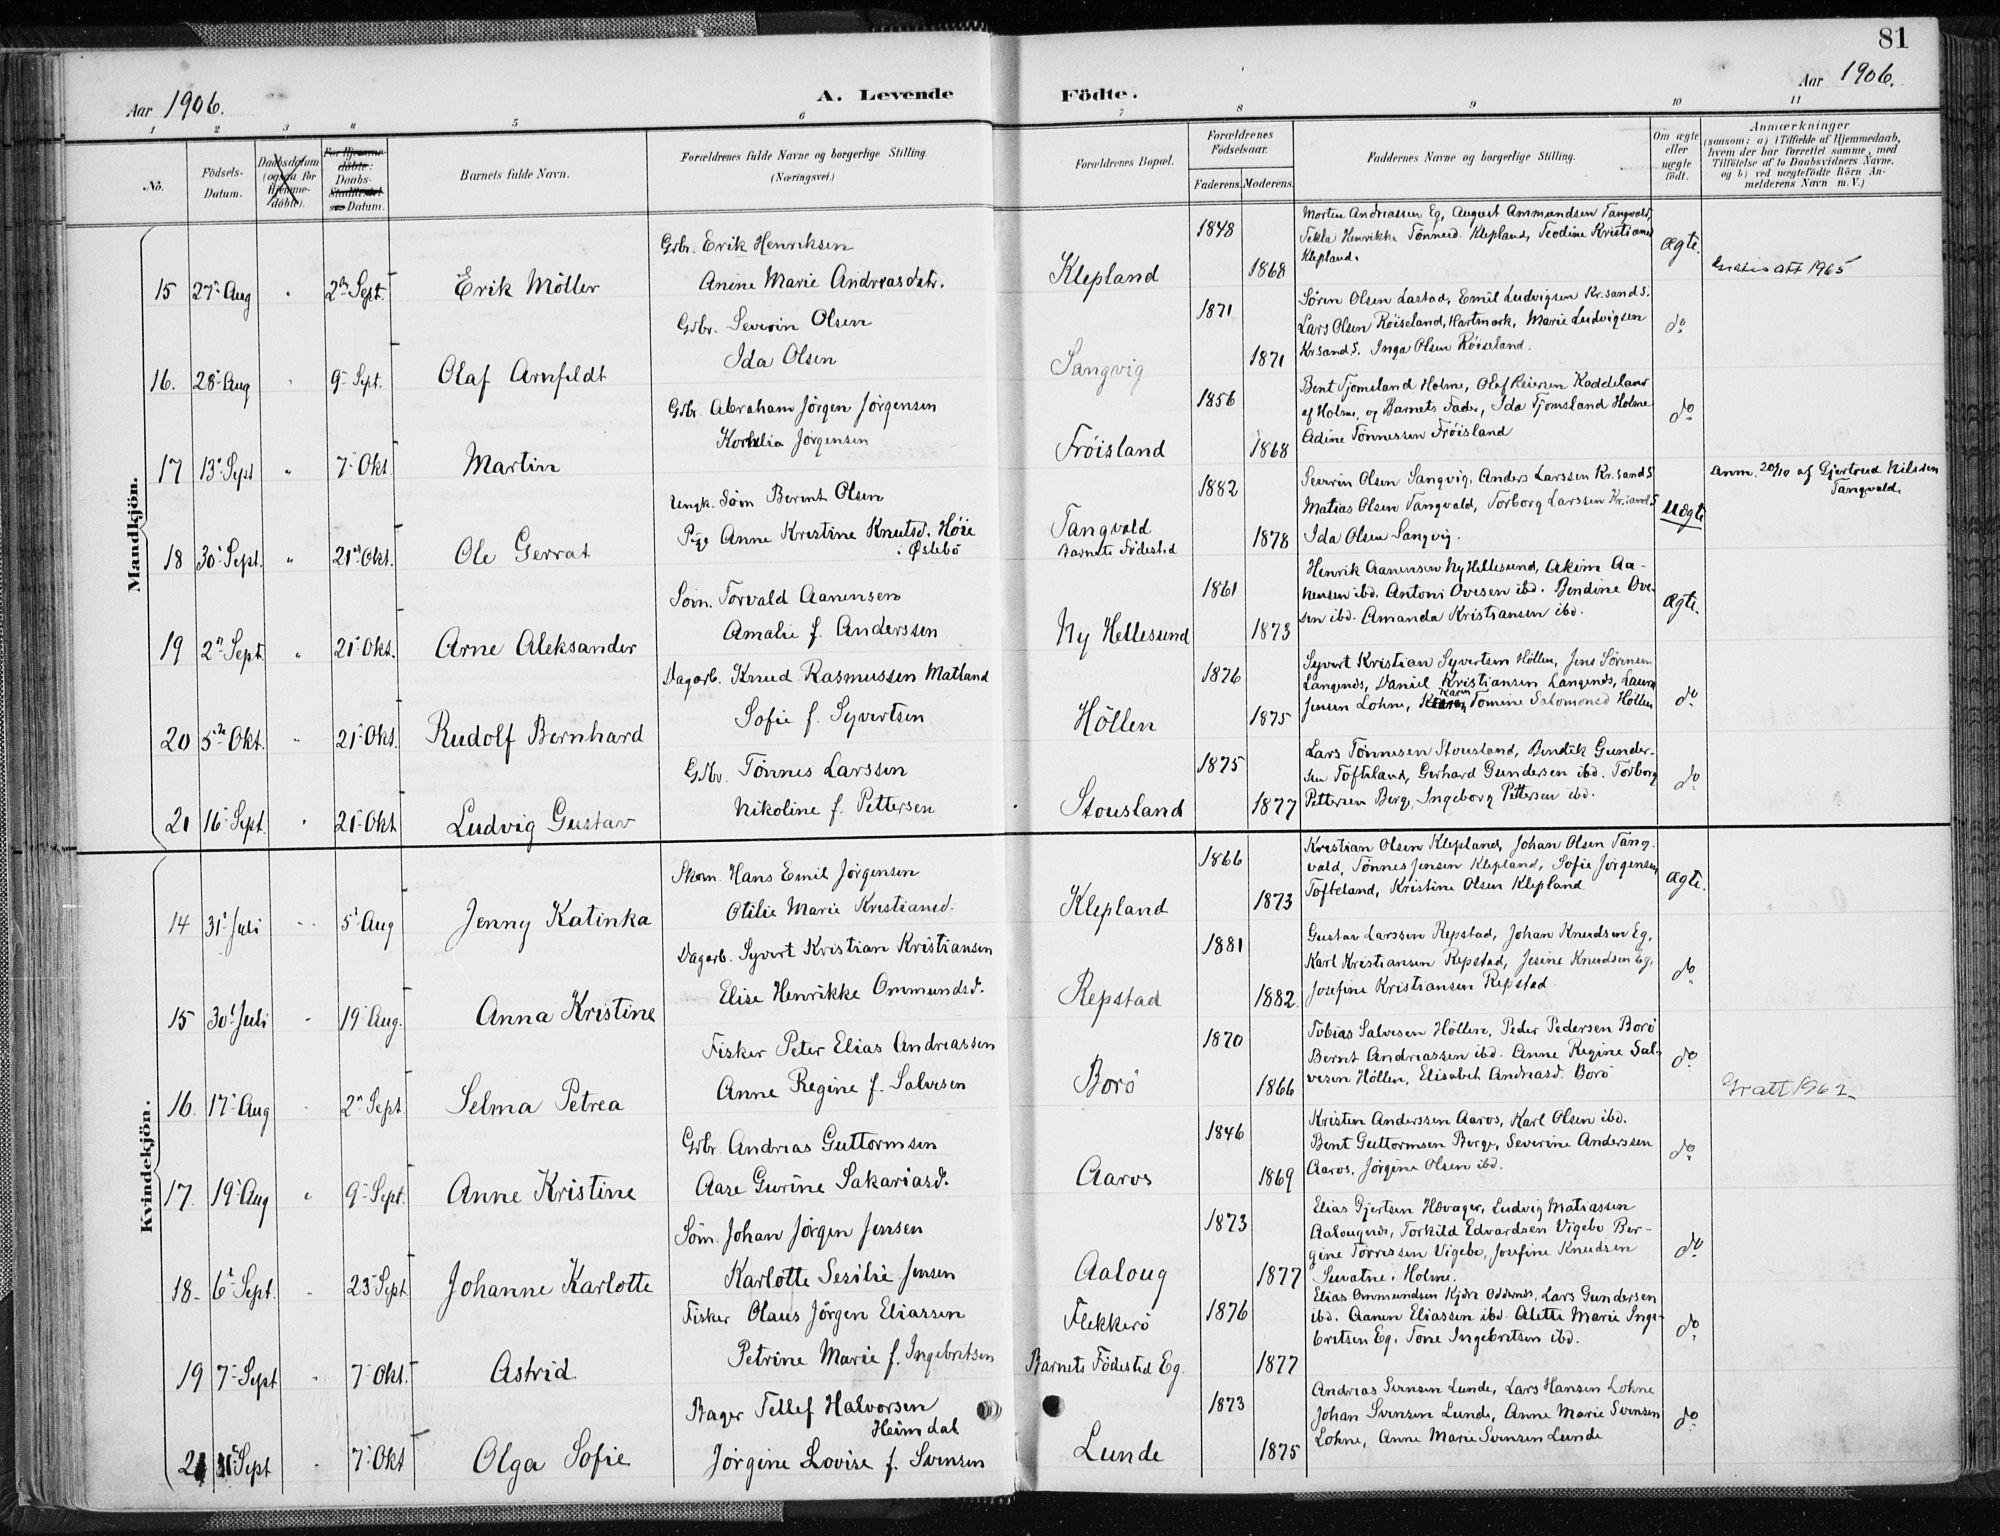 81
Aar 1906. A. Levende Födte. Aar 1906.
1 2 3 4 5 6 7 8 9 10 11
No. Födsels-Datum. Daabsdatum (ogsaa for Hjemme-döbte). For Hjemme-döbte: Daabs-Stadfæstel-ses Datum. Barnets fulde Navn. Forældrenes fulde Navne og borgerlige Stilling. (Næringsvei.) Forældrenes Bopæl. Forældrenes Födselsaar. Faderens. Moderens. Faddernes Navne og borgerlige Stilling. Om ægte eller uægte födt. Anmærkninger (saasom: a) i Tilfælde af Hjemmedaab, hvem der har forrettet samme, med Tilföielse af to Daabsvidners Navne. og b) ved uægtefödte Börn An-melderens Navn m. V.)
Mandkjön.
Gbr. Erik Henriksen 1848 Morten Andreassen Eg, August Ammundsen Tangvald,
Tekla Henrikke Tönnesd. Klepland, Teodine Kristiansd
Klepland. ægte.
15 27 Aug " 2den Sept. Erik Möller Anine Marie Andreasdtr. Klepland 1868 att 1965
Gbr. Severin Olsen 1871 Sören Olsen Lastad, Emil Ludvigsen Kr.sand S.
Lars Olsen Röiseland, Hartmark, Marie Ludvigsen
Kr.sand S. Inga Olsen Röiseland. do
16. 28 Aug " 9 Sept. Olaf Arnfeldt Ida Olsen Sangvig 1871
Gbr. Abraham Jörgen Jörgensen 1856 Bent Tjomsland Holme, Olaf Reiersen Kaddeland
af Holme, og Barnets Fader, Ida Tjomsland Holme
Adine Tönnessen Fröisland do
17 13 Sept " 7 Okt. Martin Kornelia Jörgensen Fröisland 1868
Ungk. Söm Bernt Olsen 1882 Severin Olsen Sangvig, Anders Larssen Kr.sand S
Matias Olsen Tangvald, Torborg Larssen Kr.sand S
Ida Olsen Sangvig. uægte Anm. 20/10 af Gjertrud Nilssen
Tangvald.
18 30 Sept. " 21 Okt. Ole Gerrat Pige Anne Kristine Knutsd. Höie
i Øslebö Tangvald
Barnets Födested 1878
Söm. Torvald Aanensen 1861 Henrik Aanensen Ny Hellesund, Akim Aa-
nensen ibd. Antoni Ovesen ibd. Bendine Ove-
sen ibd. Amanda Kristiansen ibd. ægte.
19 2 Sept " 21 Okt. Arne Aleksander Amalie f. Anderssen Ny Hellesund 1873
Dagarb. Knud Rasmussen Matland 1876 Syvert Kristian Syvertsen Höllen, Jens Sörensen
Langenes, Daniel Kristiansen Langenes, Laura
Jensen Lohne, Karen Tomine Salomonsd Höllen do
20 5te Okt. " 21 Okt. Rudolf Bernhard Sofie f. Syvertsen Höllen 1875
Gbr. Tönnes Larssen 1875 Lars Tönnesen Stousland, Bendik Gunder-
sen Tofteland, Gerhard Gundersen ibd. Torborg
Pettersen Berge, Ingeborg Pettersen ibd. do
21 16 Sept. " 21 Okt Ludvig Gustav Nikoline f. Pettersen Stousland 1877
Kvindekjön.
Skom. Hans Emil Jörgensen 1866 Kristian Olsen Klepland, Johan Olsen Tang-
vald, Tönnes Jensen Klepland, Sofie Jörgensen
Tofteland, Kristine Olsen Klepland ægte.
14 31 Juli " 5 Aug Jenny Katinka Otilie Marie Kristiansd. Klepland 1873
Dagarb. Syvert Kristian Kristiansen 1881 Gustav Larssen Repstad, Johan Knudsen Eg,
Karl Kristiansen Repstad, Jesine Knudsen Eg,
Josefine Kristiansen Repstad. do
15 30 Juli " 19 Aug. Anna Kristine Elise Henrikke Ommundsd. Repstad 1882
Fisker Peter Elias Andreassen 1870 Tobias Salvesen Höllen, Peder Pedersen Borö
Bernt Andreassen ibd. Anne Regine Sal-
vesen Höllen, Elisabet Andreasd. Borö do
16. 17 Aug " 2 Sept Selma Petrea Anne Regine f. Salvesen Borö 1866 Gr att 1962
Gbr. Andreas Guttormsen 1846 Kristen Anderssen Aaros, Karl Olsen ibd.
Bent Guttormsen Berge, Severine Anderssen
Aaros, Jörgine Olsen ibd. do
17. 19 Aug " 9 Sept. Anne Kristine Aase Gurine Sakariasd. Aaros 1869
Söm. Johan Jörgen Jensen 1873 Elias Gjertsen Hövager, Ludvig Matiassen
Aalougenes, Torkild Edvardsen Vigebo Ber-
gine Törressen Vigebo, Josefine Knudsen
Suvatne. Holme. do
18- 6 Sept. " 23 Sept Johanne Karlotte Karlotte Sesilie Jensen Aaloug 1877
Fisker Olaus Jörgen Eliassen Flekkerö 1876 Elias Ommundsen Kjöre Oddernes, Lars Gundersen
ibd. Aanen Eliassen ibd. Alette Marie Inge-
britsen Eg, Tone Ingebritsen ibd. do
19 7 Sept " 7 Okt. Astrid Petrine Marie f. Ingebritsen Barnets Födested Eg. 1877
Bager Tellef Halvorsen
Heimdal 1873 Andreas Svensen Lunde, Lars Hansen Lohne
Johan Svensen Lunde, Anne Marie Svensen
Lohne, Anne Marie Svensen Lunde do
Sept " 7 Okt Olga Sofie Jörgine Lovise f. Svensen Lunde 1875